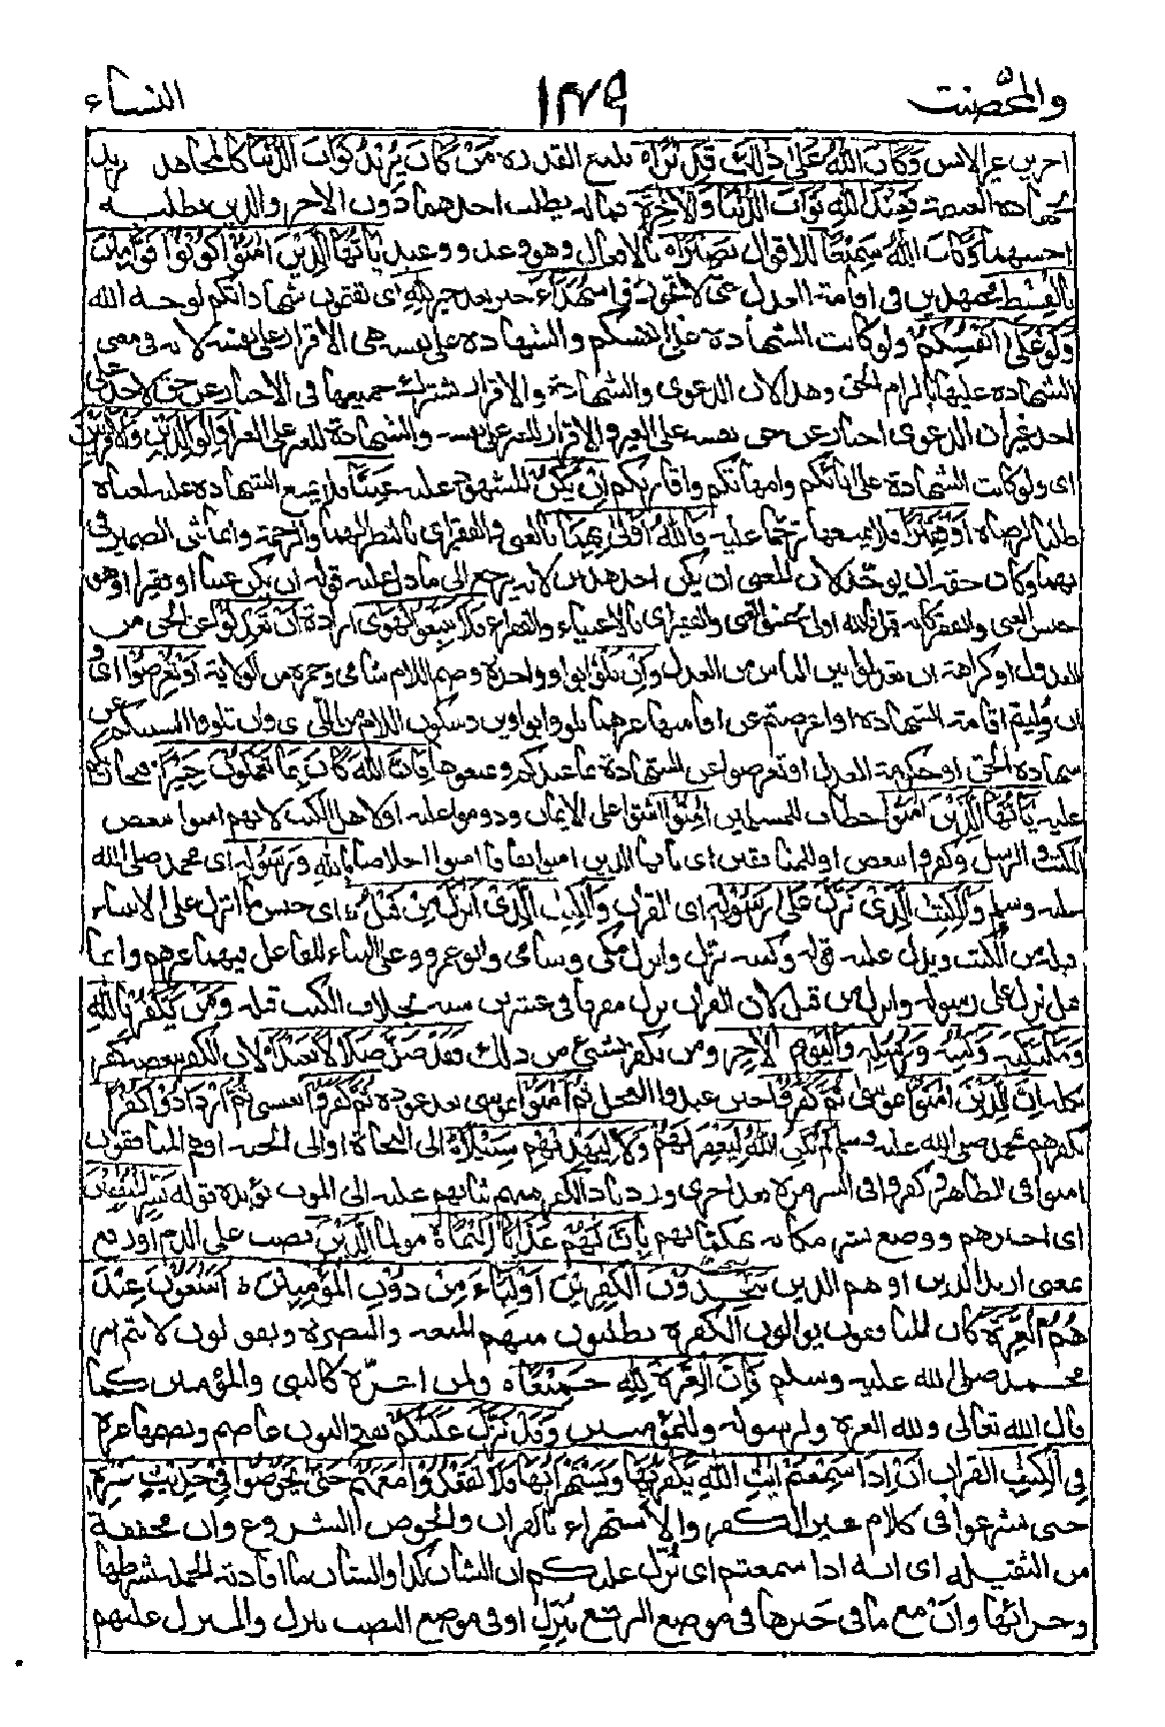 والمحصنت ١٢٧٩ النساء
آخرين غير الانس وَكَانَ اللهُ عَلَىٰ ذٰلِكَ قَدِيْرًا بليغ القدرة مَنْ كَانَ يُرِيْدُ ثَوَابَ الدُّنْيَا كالمجاهد يريد
بجهاده الغنيمة فَعِنْدَ اللهِ ثَوَابُ الدُّنْيَا وَالْاٰخِرَةِ فماله يطلب احدهما دون الاخر والذي يطلبه
اخسهما وَكَانَ اللهُ سَمِيْعًا للاقوال بَصِيْرًا بالافعال وهو وعد ووعيد يٰاَيُّهَا الَّذِيْنَ اٰمَنُوْا كُوْنُوْا قَوَّامِيْنَ
بِالْقِسْطِ مجتهدين في اقامة العدل حتى لا تجوروا شُهَدَاءَ خبر بعد خبر لِلّٰهِ اى تقيمون شهاداتكم لوجه الله
وَلَوْ عَلٰى اَنْفُسِكُمْ ولو كانت الشهادة على انفسكم والشهادة على نفسه هى الاقرار على نفسه لانه في معنى
الشهادة عليها بالزام الحق وهذا لان الدعوى والشهادة والاقرار تشترك جميعها في الاخبار عن حق لاحد على
احد غير ان الدعوى اخبار عن حق لنفسه على الغير والاقرار للغير على نفسه والشهادة للغير على الغير اَوِ الْوَالِدَيْنِ وَالْاَقْرَبِيْنَ
اى ولو كانت الشهادة على ابائكم وامهاتكم واقاربكم اِنْ يَّكُنْ المشهود عليه غَنِيًّا فلا يمنع الشهادة عليه لغناه
طلبا لرضاه اَوْ فَقِيْرًا فلا يمنعها ترحما عليه فَاللهُ اَوْلٰى بِهِمَا بالغنى والفقير اى بالنظر لهما والرحمة وانما ثنى الضمير في
بهما وكان حقه ان يوحد لان المعنى ان يكن احد هذين لانه يرجع الى ما دل عليه قوله ان يكن غنيا او فقيرا وهو
جنس الغنى والفقير كانه قيل فالله اولى بجنسى الغنى والفقير اى بالاغنياء والفقراء فَلَا تَتَّبِعُوا الْهَوٰى ارادة اَنْ تَعْدِلُوْا عن الحق من
العدول او كراهة ان تعدلوا بين الناس من العدل وَاِنْ تَلْوُوْا بواو واحدة وضم اللام شامى وحمزة من الولاية اَوْ تُعْرِضُوْا اى و
ان وُليتم اقامة الشهادة او اعرضتم عن اقامتها غيرهما تلووا بواوين وسكون اللام من اللى اى وان تلووا السنتكم عن
شهادة الحق او حكومة العدل او تعرضوا عن الشهادة بما عندكم وتمنعوها فَاِنَّ اللهَ كَانَ بِمَا تَعْمَلُوْنَ خَبِيْرًا فيجازيكم
عليه يٰاَيُّهَا الَّذِيْنَ اٰمَنُوْا خطاب للمسلمين اٰمِنُوْا اثبتوا على الايمان ودوموا عليه او لاهل الكتب لانهم امنوا ببعض
الكتب والرسل وكفروا ببعض او للمنافقين اى يا ايها الذين امنوا نفاقا امنوا اخلاصا بِاللهِ وَرَسُوْلِهٖ اى محمد صلى الله
عليه وسلم وَالْكِتٰبِ الَّذِيْ نَزَّلَ عَلٰى رَسُوْلِهٖ اى القران وَالْكِتٰبِ الَّذِيْ اَنْزَلَ مِنْ قَبْلُ اى جنس ما انزل على الانبياء
قبله من الكتب ويدل عليه قوله وكتبه نزل وانزل مكى وشامى وابو عمرو وعلى البناء للفاعل فيهما غيرهم وانما
قيل نزل على رسوله وانزل من قبل لان القران نزل مفرقا في عشرين سنة بخلاف الكتب قبله وَمَنْ يَّكْفُرْ بِاللهِ
وَمَلٰئِكَتِهٖ وَكُتُبِهٖ وَرُسُلِهٖ وَالْيَوْمِ الْاٰخِرِ اى ومن يكفر بشئ من ذلك فَقَدْ ضَلَّ ضَلٰلًا بَعِيْدًا لان الكفر ببعضه كفر
بكله اِنَّ الَّذِيْنَ اٰمَنُوْا بموسى ثُمَّ كَفَرُوْا حين عبدوا العجل ثُمَّ اٰمَنُوْا بموسى بعد عوده ثُمَّ كَفَرُوْا بعيسى ثُمَّ ازْدَادُوْا كُفْرًا
بكفرهم بمحمد صلى الله عليه وسلم لَّمْ يَكُنِ اللهُ لِيَغْفِرَ لَهُمْ وَلَا لِيَهْدِيَهُمْ سَبِيْلًا الى النجاة او الى الجنة او هم المنافقون
امنوا في الظاهر وكفروا في السر مرة بعد اخرى وازدياد الكفر منهم ثباتهم عليه الى الموت يؤيده قوله بَشِّرِ الْمُنٰفِقِيْنَ
اى اخبرهم ووضع بشر مكانه تهكما بهم بِاَنَّ لَهُمْ عَذَابًا اَلِيْمًا مولما الَّذِيْنَ نصب على الذم او رفع
بمعنى اريد الذين او هم الذين يَتَّخِذُوْنَ الْكٰفِرِيْنَ اَوْلِيَاءَ مِنْ دُوْنِ الْمُؤْمِنِيْنَ ط اَيَبْتَغُوْنَ عِنْدَ
هُمُ الْعِزَّةَ كان المنافقون يوالون الكفرة يطلبون منهم المنعة والنصرة ويقولون لا يتم امر
محمد صلى الله عليه وسلم فَاِنَّ الْعِزَّةَ لِلّٰهِ جَمِيْعًا ولمن اعزه كالنبى والمؤمنين كما
قال الله تعالى ولله العزة ولرسوله وللمؤمنين وَقَدْ نَزَّلَ عَلَيْكُمْ بفتح النون عاصم وبضمها غيره
فِي الْكِتٰبِ القران اَنْ اِذَا سَمِعْتُمْ اٰيٰتِ اللهِ يُكْفَرُ بِهَا وَيُسْتَهْزَاُ بِهَا فَلَا تَقْعُدُوْا مَعَهُمْ حَتّٰى يَخُوْضُوْا فِيْ حَدِيْثٍ غَيْرِهٖ
حتى يشرعوا في كلام غير الكفر والاستهزاء بالقران والخوض الشروع وان مخففة
من الثقيلة اى انه اذا سمعتم اى نزل عليكم ان الشان كذا والشان ما افادته الجملة بشرطها
وجزائها وان مع ما في حيزها في موضع الرفع بنزل او في موضع النصب بنزل والمنزل عليهم